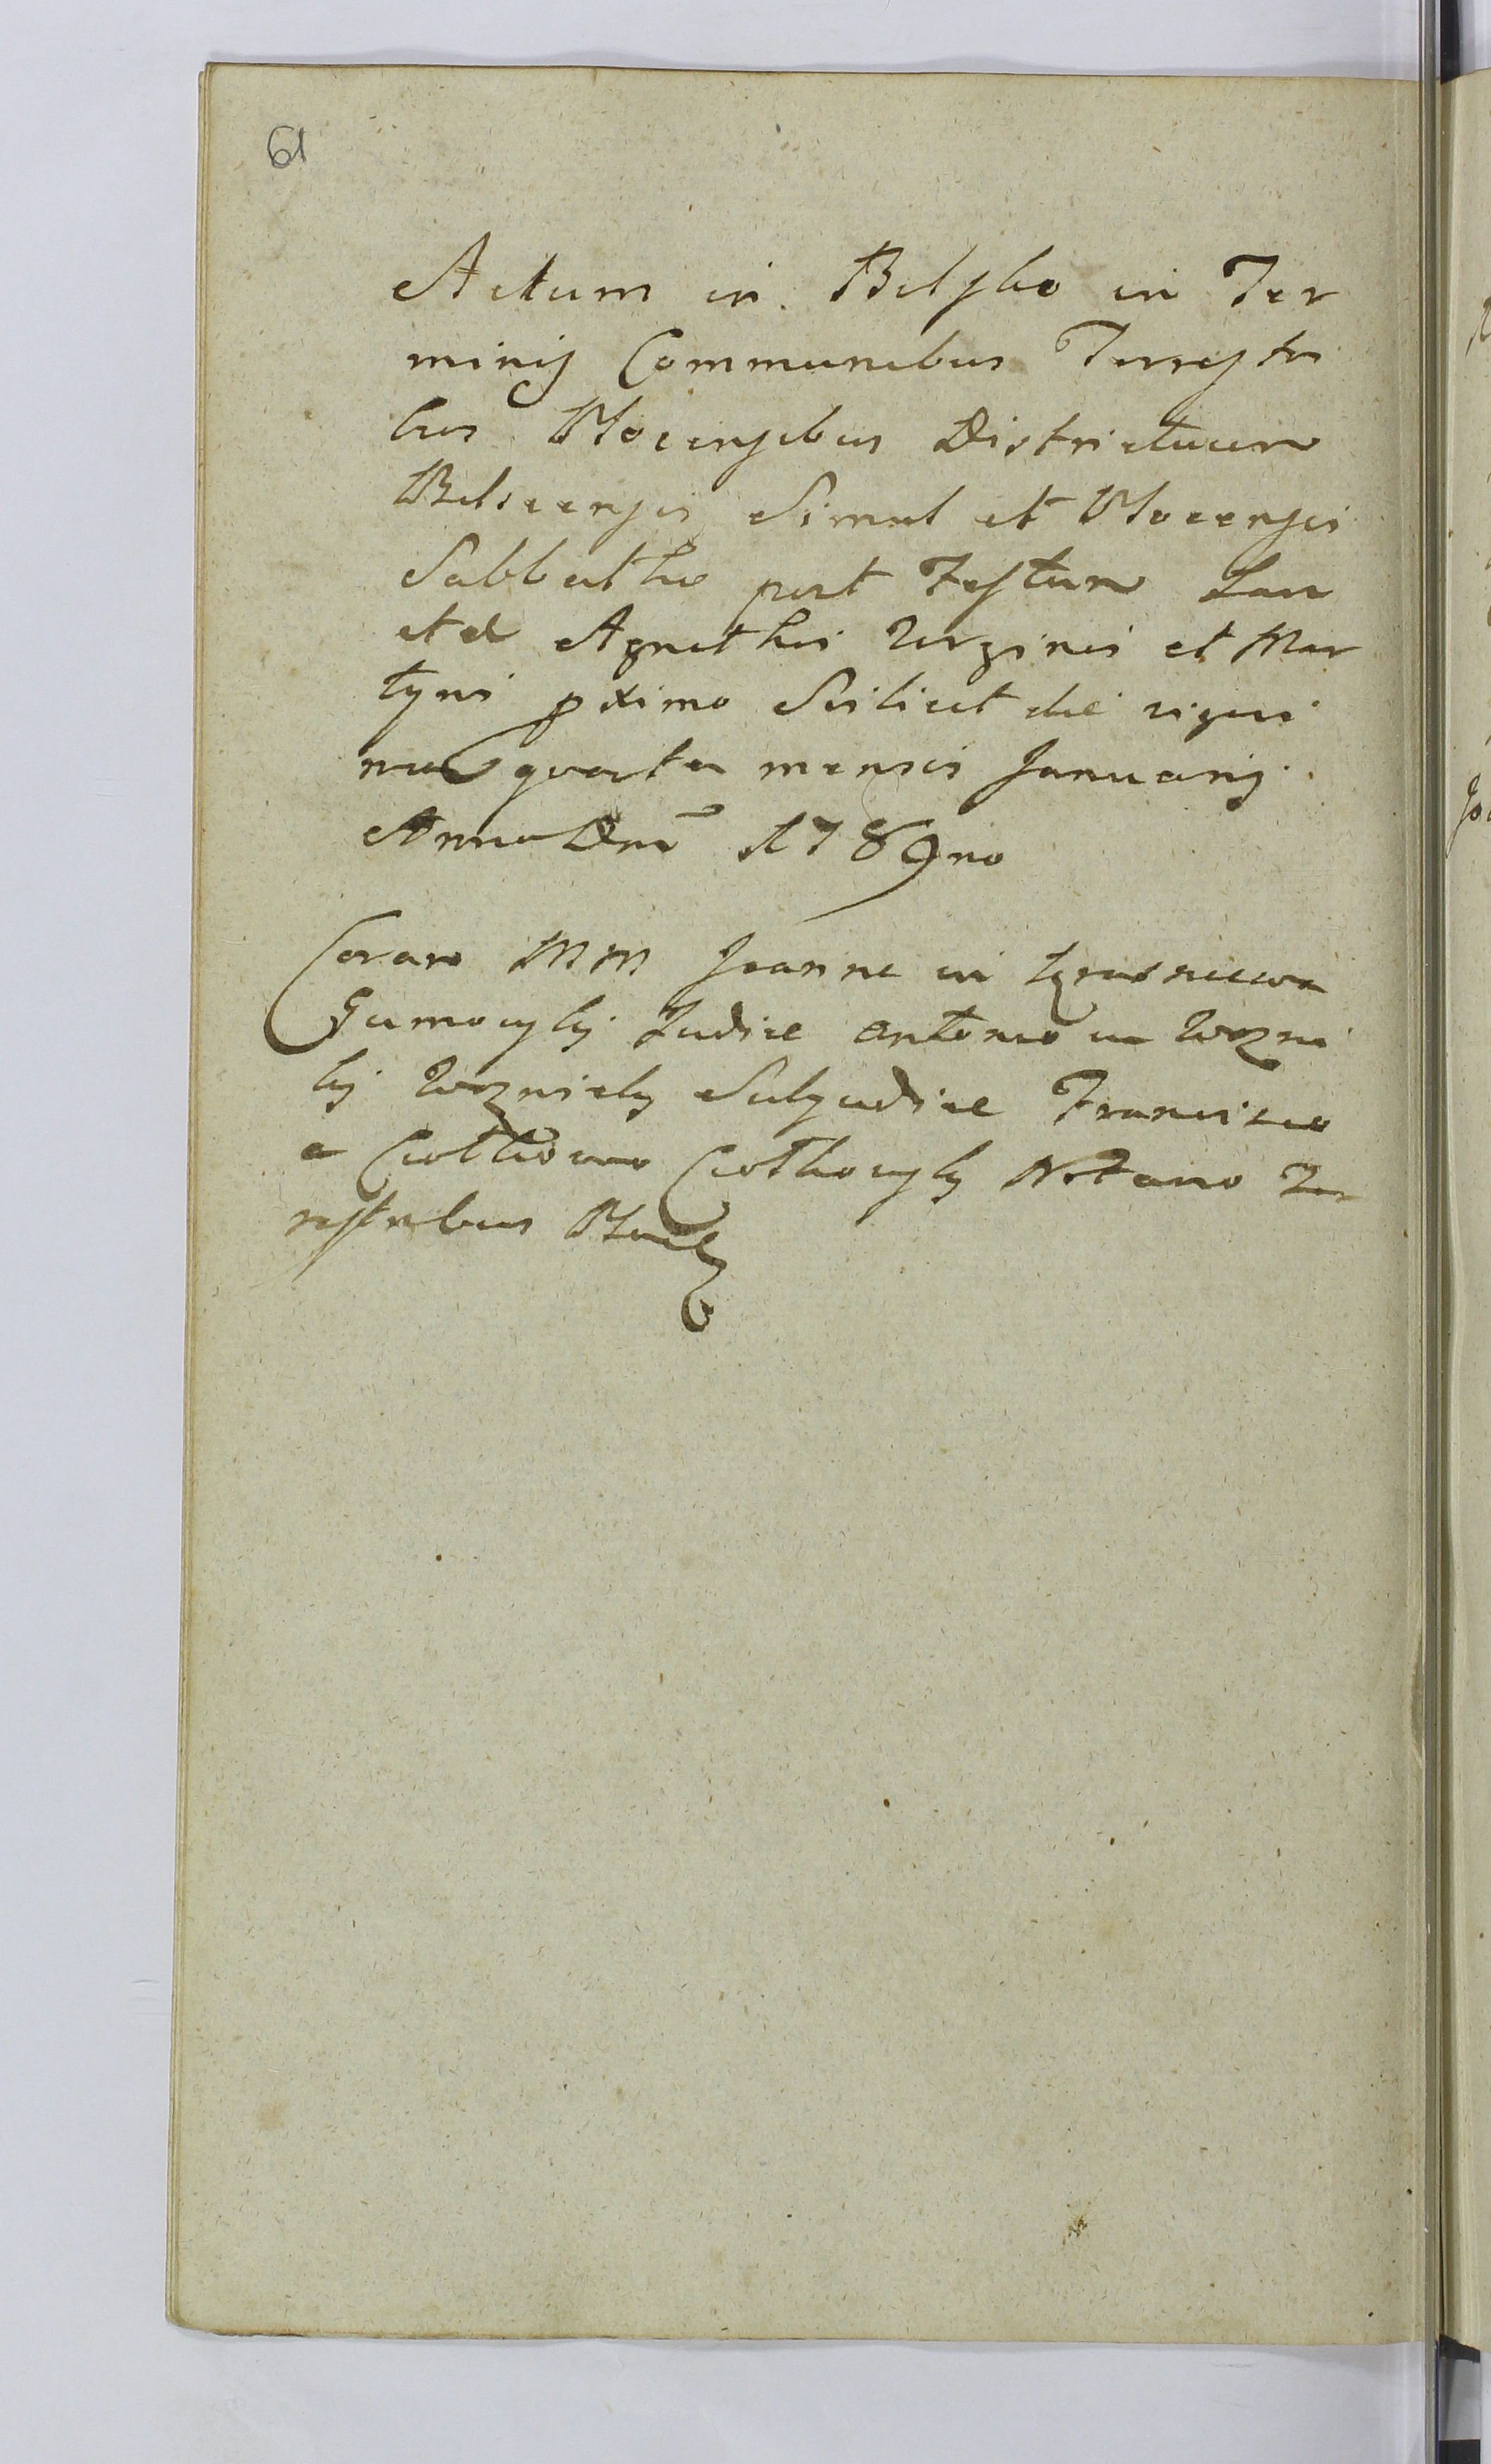 61
Actum in Bielsko in Ter
minis Communibus Terrestri
bus Plocensibus Districtuum
Belscensis Simul et Plocensis
Sabbatho post Festum San
ctae Agnethis Virginis et Mar
tyris pximo Scilicet die vigesi
ma quarta mensis Januarij
Anno Dni 1789no
Coram MM Joanne in
Judice Antonio in Wozni
ki Woznicky Subjudice Francisco
a Ciolkowo Ciolkowsky Notario Ter
restribus Plocen